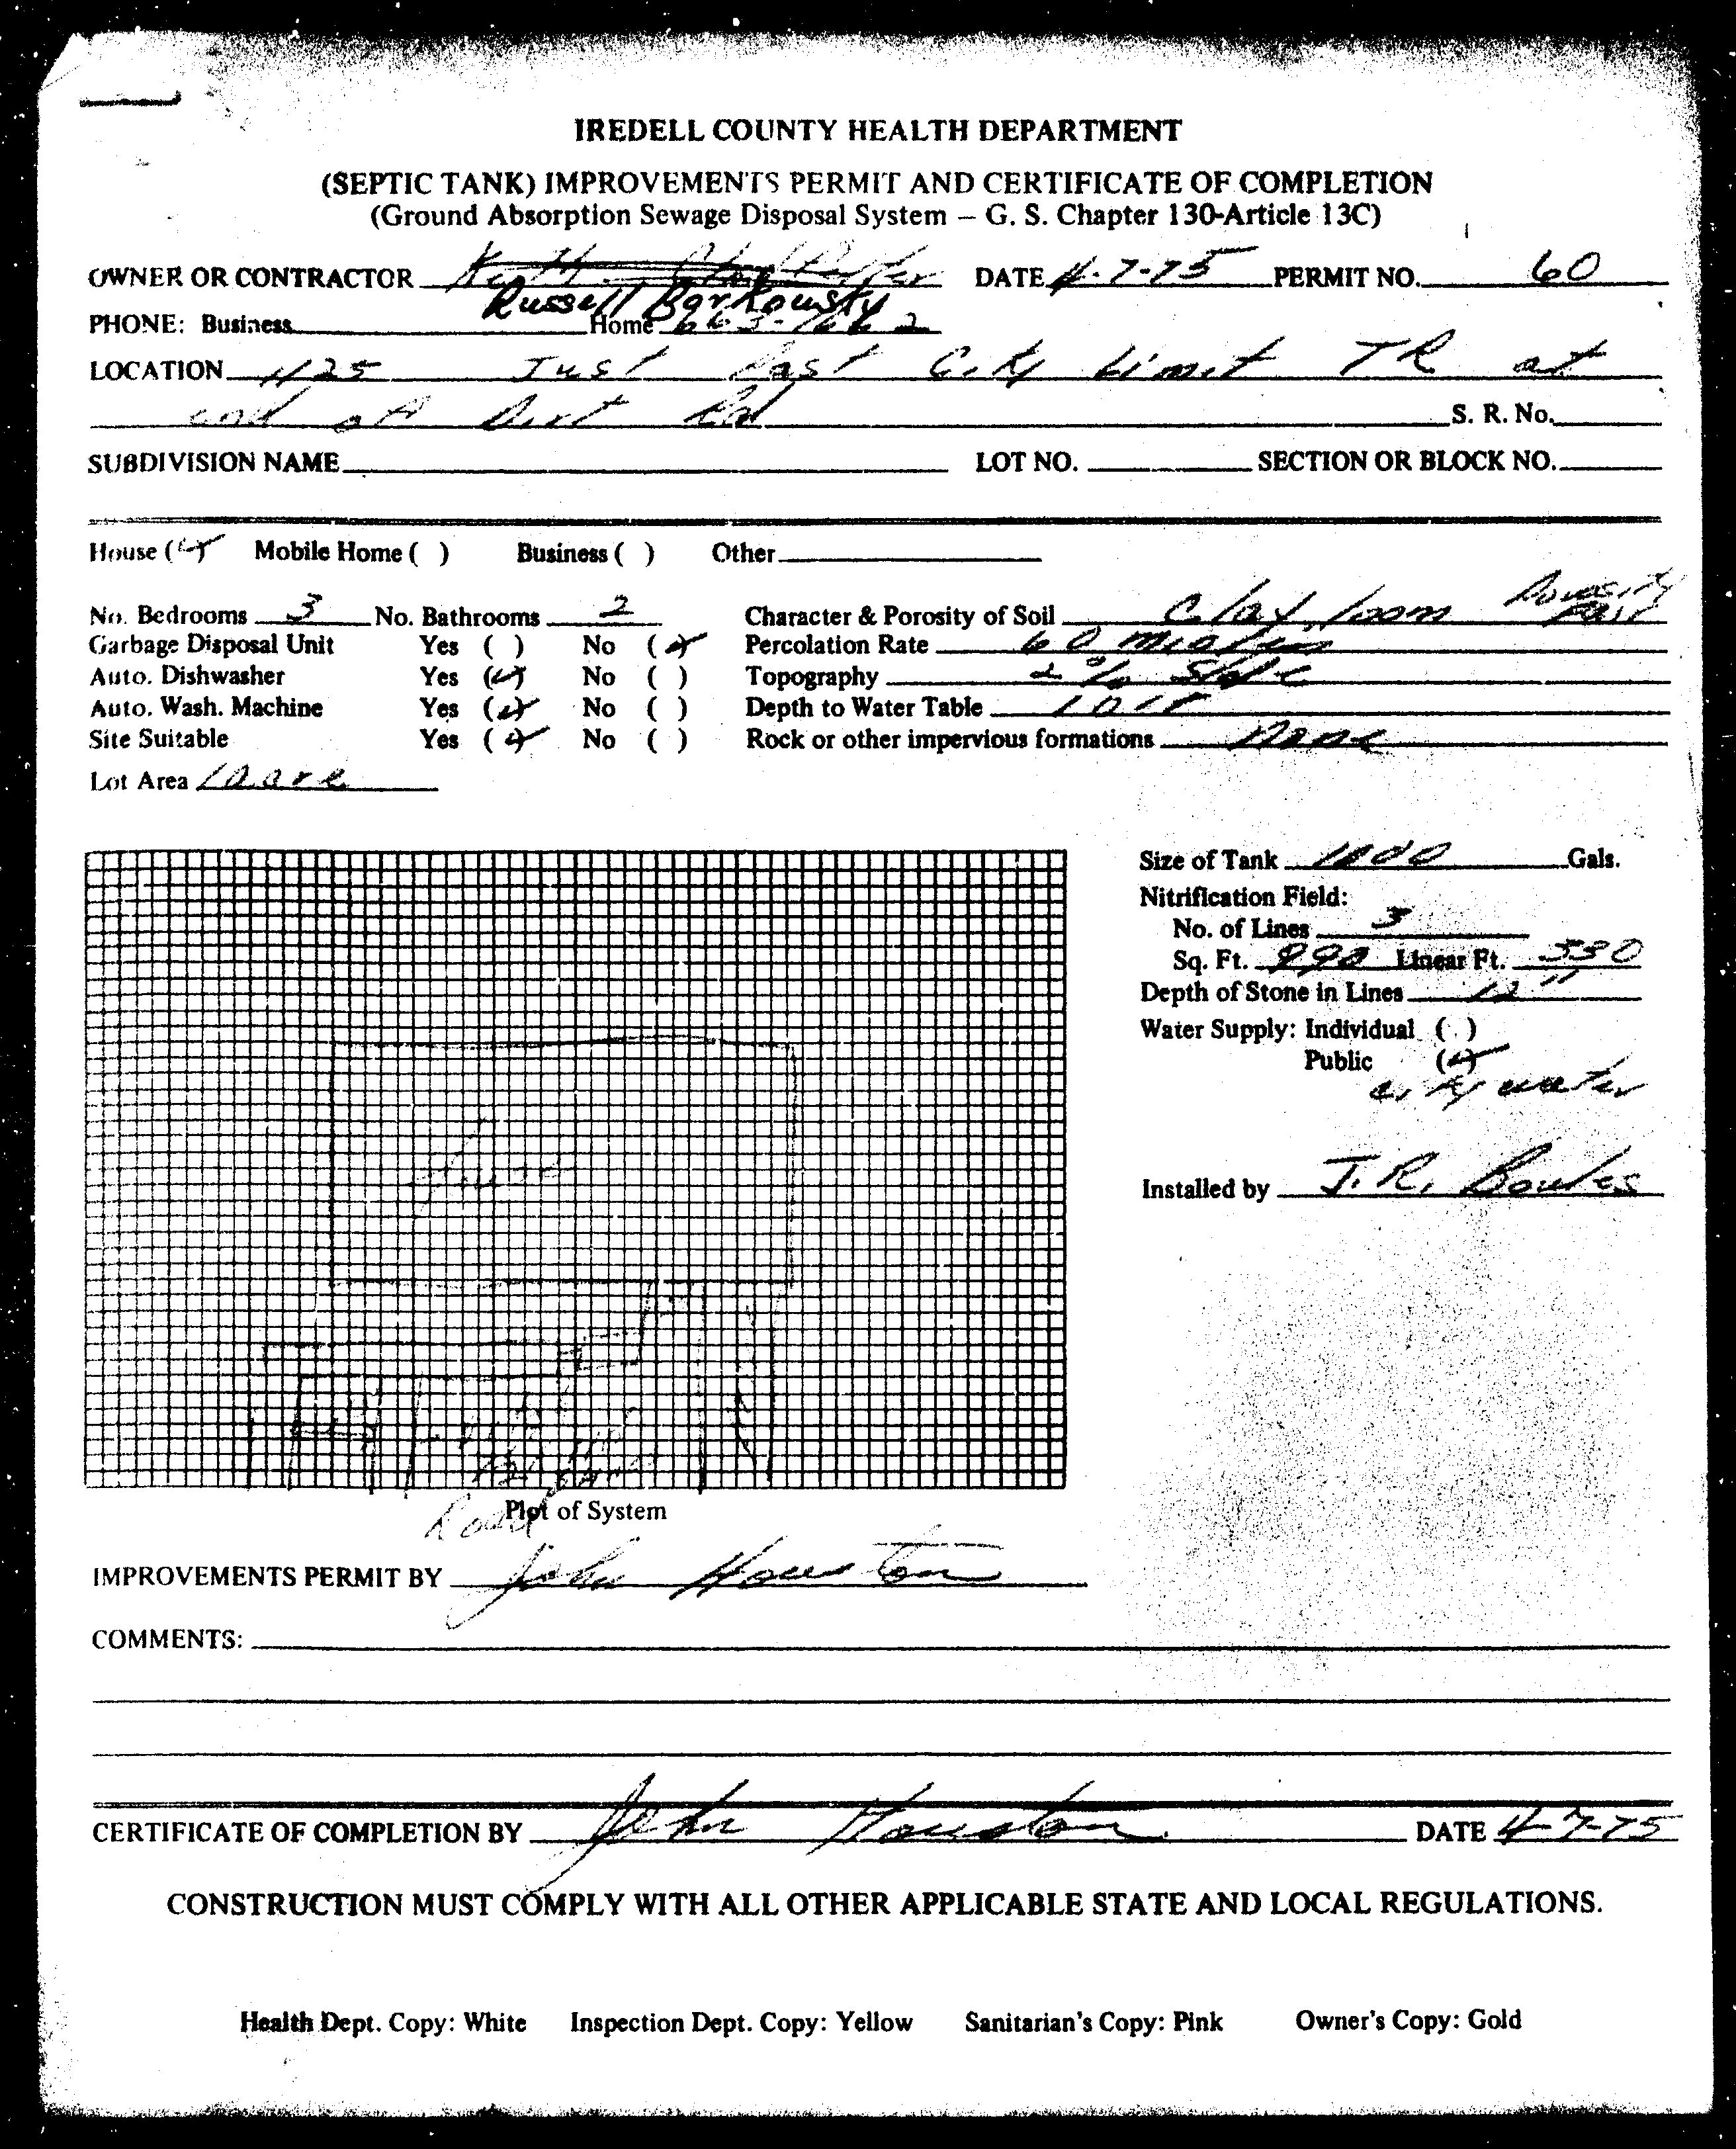 IREDELL COUNTY HEALTH DEPARTMENT
(SEPTIC TANK) IMPROVEMENTS PERMIT AND CERTIFICATE OF COMPLETION
(Ground Absorption Sewage Disposal System – G. S. Chapter 130-Article 13C)
OWNER OR CONTRACTOR DATE 4-7-75 PERMIT NO. 60
Russell Barkowsky
PHONE: Business Home 663-
LOCATION Just Past City Limit TR at
end of Dirt Rd S. R. No.
SUBDIVISION NAME LOT NO. SECTION OR BLOCK NO.
House (✓) Mobile Home ( ) Business ( ) Other
No. Bedrooms 3 No. Bathrooms 2 Character & Porosity of Soil Clay loam Porosity Fair
Garbage Disposal Unit Yes ( ) No (✓) Percolation Rate 60
Auto. Dishwasher Yes (✓) No ( ) Topography 2% Slope
Auto. Wash. Machine Yes (✓) No ( ) Depth to Water Table
Site Suitable Yes (✓) No ( ) Rock or other impervious formations None
Lot Area
Size of Tank 1000 Gals.
Nitrification Field:
No. of Lines 3
Sq. Ft. 990 Linear Ft. 330
Depth of Stone in Lines 12"
Water Supply: Individual ( )
Public (✓)
city water
Installed by J.R. Bowles
House
Road
Plot of System
IMPROVEMENTS PERMIT BY John Houston
COMMENTS:
CERTIFICATE OF COMPLETION BY John Houston DATE 4-7-75
CONSTRUCTION MUST COMPLY WITH ALL OTHER APPLICABLE STATE AND LOCAL REGULATIONS.
Health Dept. Copy: White Inspection Dept. Copy: Yellow Sanitarian's Copy: Pink Owner's Copy: Gold